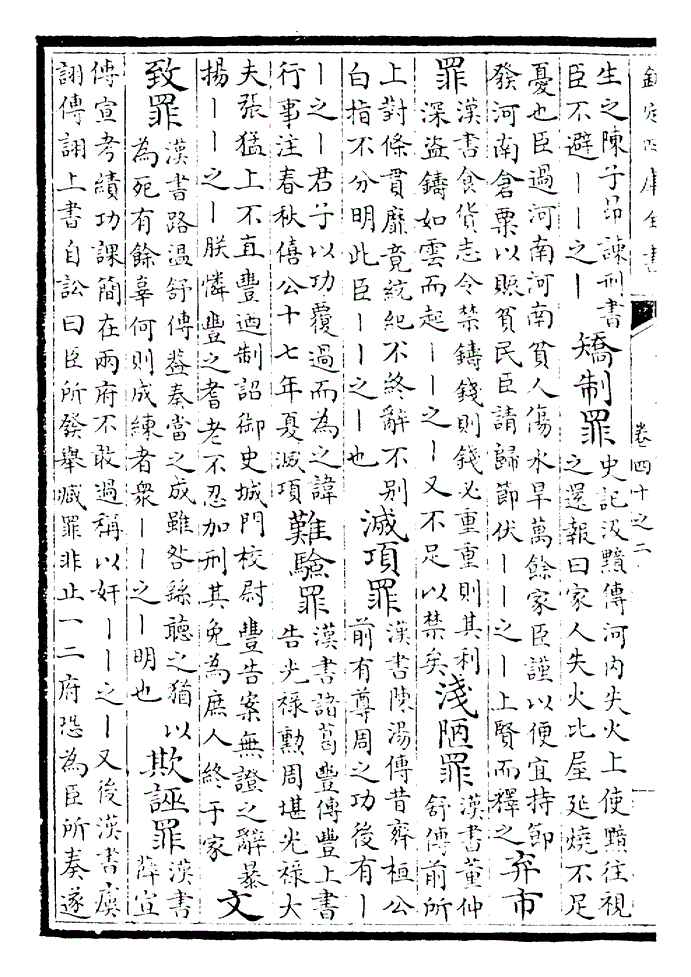 欽定四庫全書
卷四十之二
生之陳子昻諫刑書
臣不避丨丨之丨
矯制罪
史記汲黯傳河内失火上使黯往視
之還報曰家人失火比屋延燒不足
憂也臣過河南河南貧人傷水旱萬餘家臣謹以便宜持節
發河南倉粟以賑貧民臣請歸節伏丨丨之丨上賢而釋之
弃市
罪
漢書食貨志令禁鑄錢則錢必重重則其利
深盗鑄如雲而起丨丨之丨又不足以禁矣
淺陋罪
漢書董仲
舒傳前所
上對條貫靡竟統紀不終辭不别
白指不分明此臣丨丨之丨也
滅項罪
漢書陳湯傳昔齊桓公
前有尊周之功後有丨
丨之丨君子以功覆過而為之諱
行事注春秋僖公十七年夏滅項
難驗罪
漢書諸葛豐傳豐上書
告光禄勲周堪光禄大
夫張猛上不直豐迺制詔御史城門校尉豐告案無證之辭暴
揚丨丨之丨朕憐豐之耆老不忍加刑其免為庶人終于家
文
致罪
漢書路温舒傳葢奏當之成雖咎繇聽之猶以
為死有餘辜何則成練者衆丨丨之丨明也
欺誣罪
漢書
薛宣
傳宣考績功課簡在兩府不敢過稱以奸丨丨之丨又後漢書虞
詡傳詡上書自訟曰臣所發舉臧罪非止一二府恐為臣所奏遂